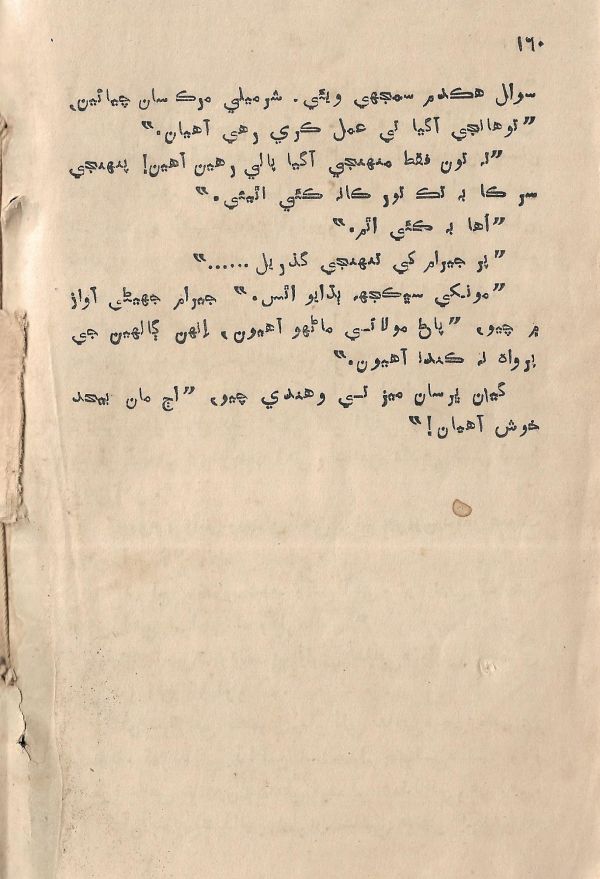 ١٦٠
سوال هڪدم سمجهي ويئي. شرميلي مرڪ سان چيائين،
”توهانجي آگيا تي عمل ڪري رهي آهيان.“
”نه تون فقط منهنجي آگيا پالي رهين آهين! پنهنجي
سر ڪا به تڪ تور ڪانه ڪئي اٿيئي.“
”اُها به ڪئي اٿم.“
”پر جيرام کي تنهنجي گذريل ......“
”مونکي سڀڪجهه ٻڌايو اٿس.“ جيرام جهيڻي آواز
۾ چيو، ”پاڻ مولائي ماڻهو آهيون، اِنهن ڳالهين جي
پرواهه نه ڪندا آهيون.“
گيان ڀرسان ميز تي وهندي چيو، ”اڄ مان بيحد
خوش آهيان!“